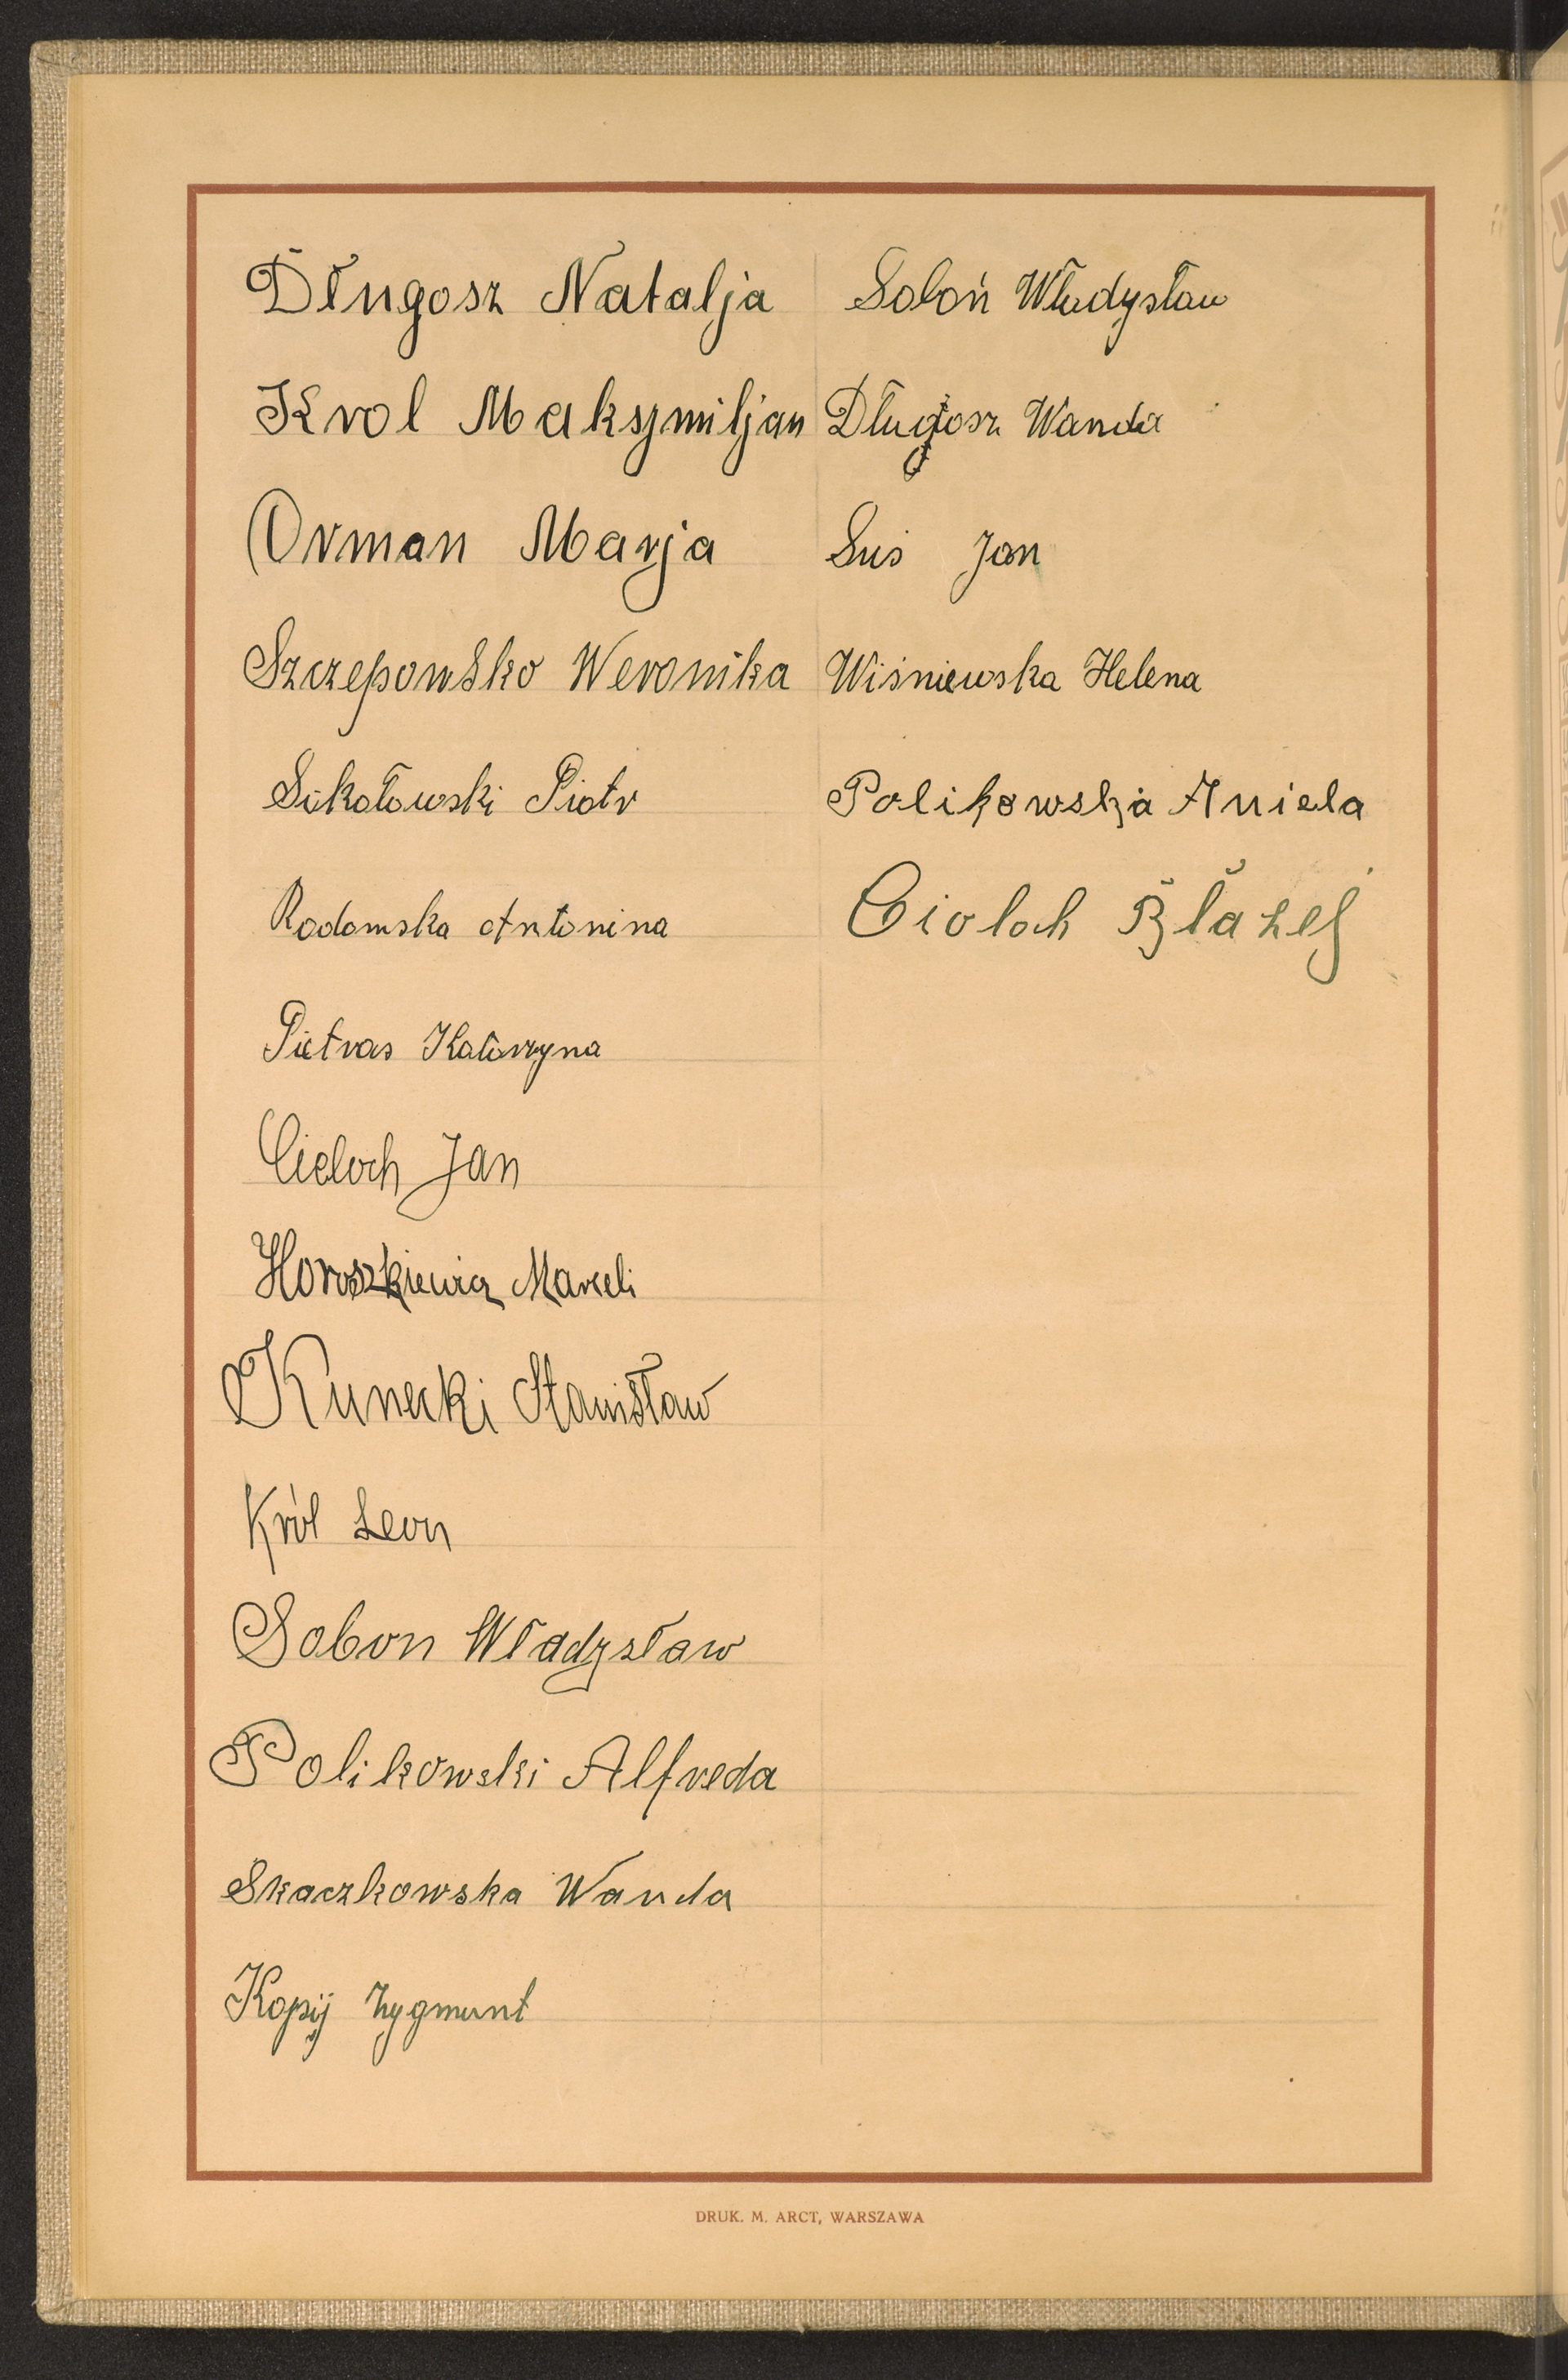 Długosz Natalja
Krol Maksymiljan
Orman Marja
Szczepowsko Weronika
Sokołowski Piotr
Radomska Antonina
Pietras Katarzyna
Cieloch Jan
Horoszkiewicz Marceli
Kunecki Stanisław
Król Leon
Sobon Władysław
Polikowski Alfreda
Skaczkowska Wanda
Kopij Zygmunt
Soboń Władysław
Długosz Wanda
Suś Jan
Wiśniewska Helena
Polikowska Aniela
Cioloch Błażej
DRUK. M. ARCT, WARSZAWA